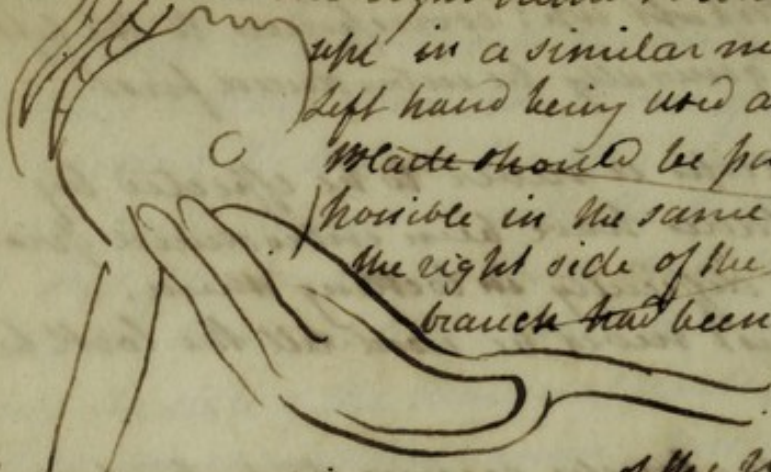 right hand
in a similar
left hand being used a
Blade should be pa
possible in the same
the right side of the
branch had been
of the